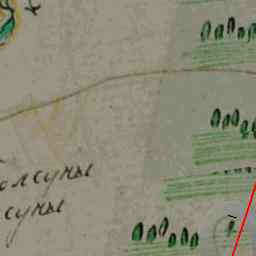 олсуны
суны